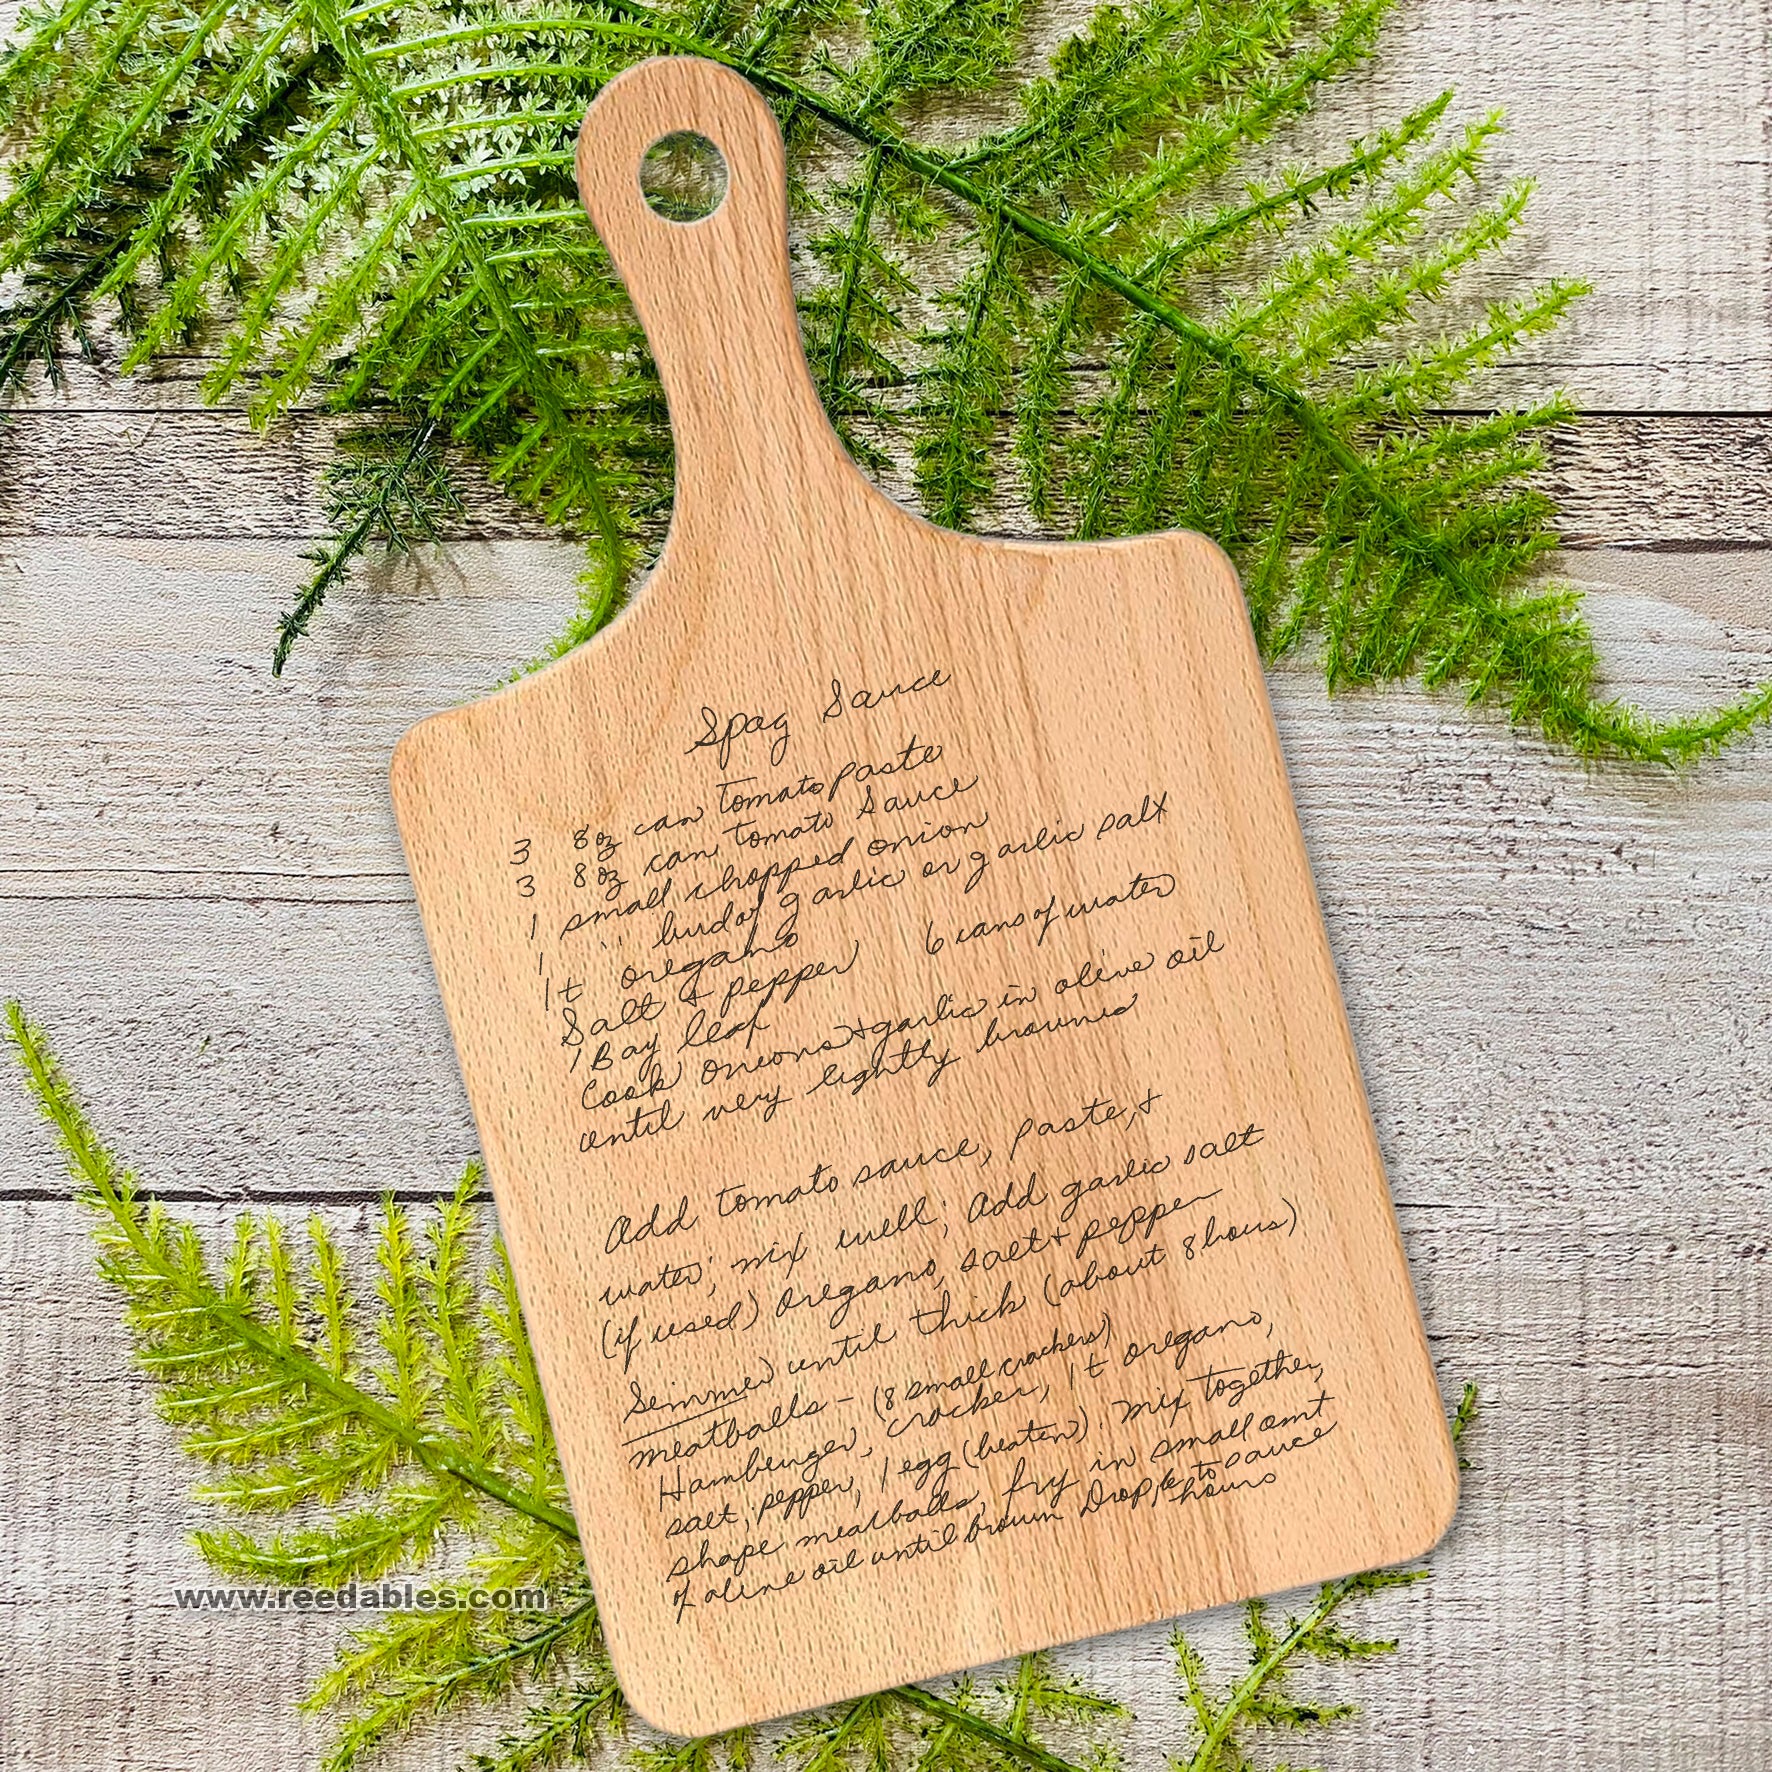 Spag Sauce
3 8oz can tomato paste
3 8oz can tomato Sauce
1 small chopped onion
1 " bud of garlic or garlic salt
1t oregano
Salt + pepper 6 cans of water
1 Bay leaf
Cook onions + garlic in olive oil
until very lightly browned
Add tomato sauce, paste, +
water; mix well; Add garlic salt
(if used) oregano, salt + pepper
Simmer until thick (about 8 hours)
meatballs - (8 small crackers)
Hamburger, cracker, 1t oregano,
salt, pepper, 1 egg (beaten). Mix together,
shape meatballs, fry in small amt
of olive oil until brown Drop to sauce
hours
www.reedables.com